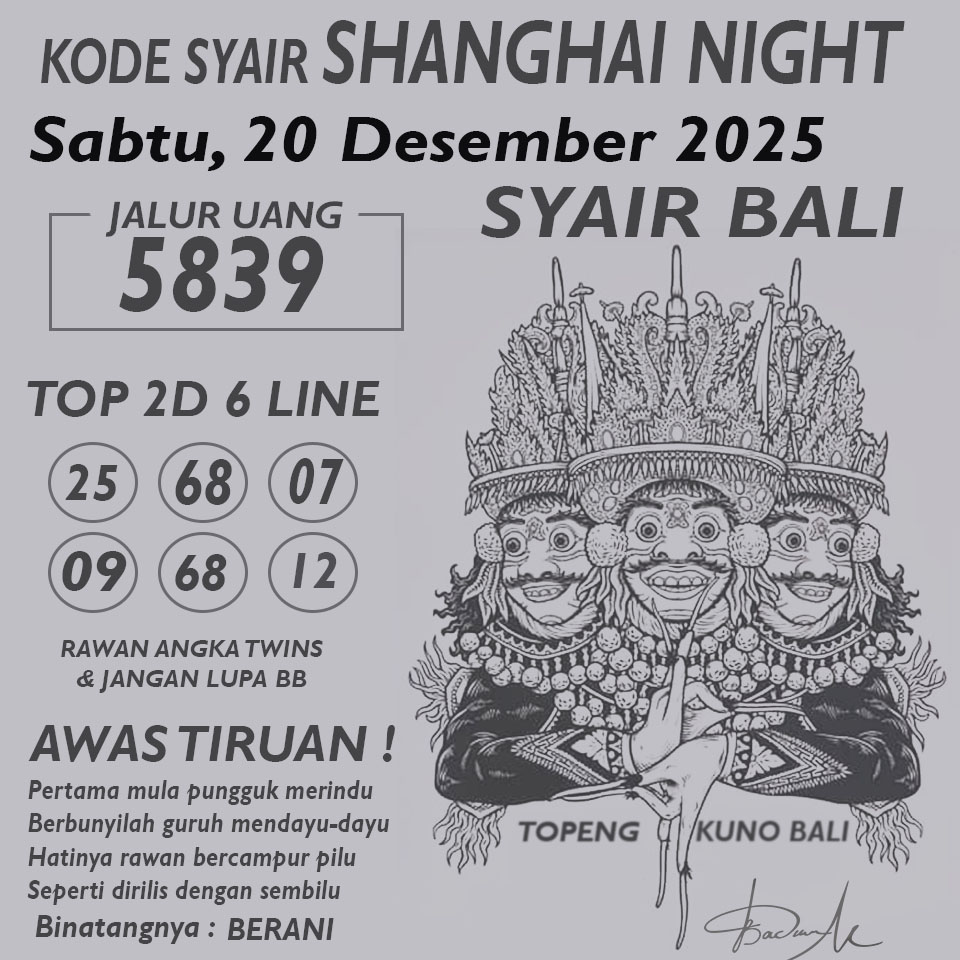 KODE SYAIR SHANGHAI NIGHT
Sabtu, 20 Desember 2025
SYAIR BALI
JALUR UANG
5839
TOP 2D 6 LINE
25 68 07
09 68 12
RAWAN ANGKA TWINS
& JANGAN LUPA BB
AWAS TIRUAN !
Pertama mula pungguk merindu
Berbunyilah guruh mendayu-dayu
Hatinya rawan bercampur pilu
Seperti dirilis dengan sembilu
Binatangnya : BERANI
TOPENG KUNO BALI